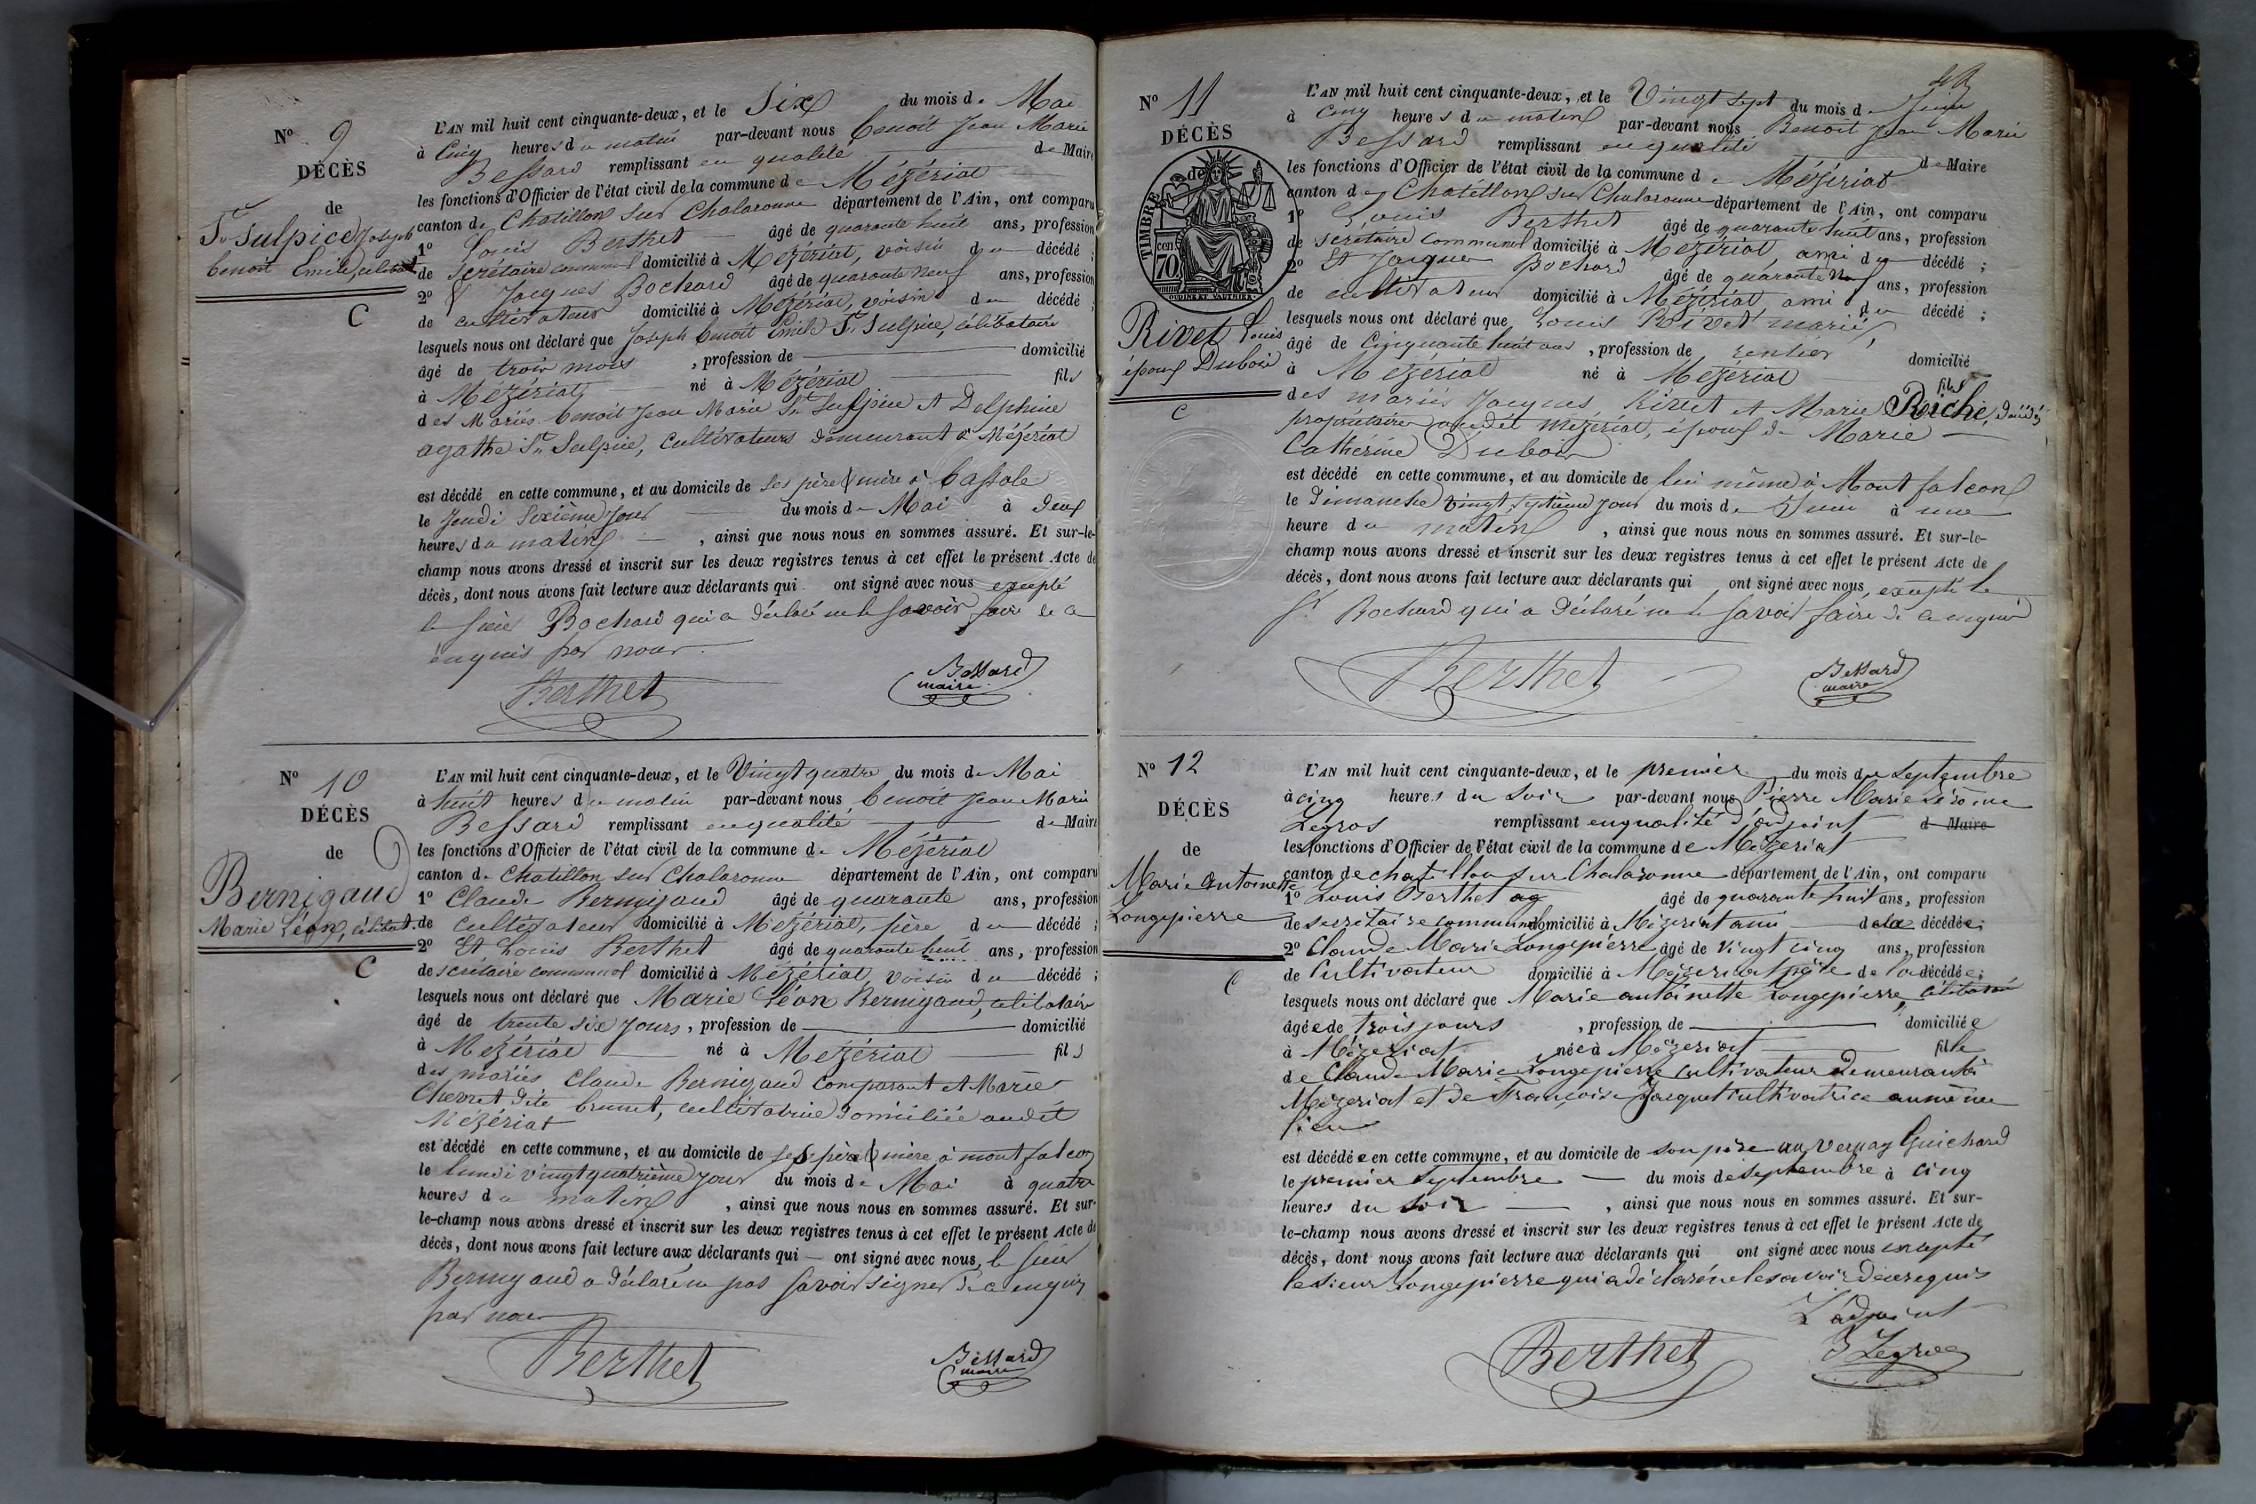 N° 9
DÉCÈS
de
St Sulpice Joseph
benoit Emile, célibat.
C
L'AN mil huit cent cinquante-deux, et le Six du mois de Mai
à Cinq heures du matin par-devant nous benoit Jean Marie
Bessard remplissant en qualité de Maire
les fonctions d'Officier de l'état civil de la commune de Mézériat
canton de Chatillon sur Chalaronne département de l'Ain, ont comparu
1° Louis Berthet âgé de quarante huit ans, profession
de Secrétaire communal domicilié à Mézériat, voisin du décédé ;
2° & Jacques Bochard âgé de quarante neuf ans, profession
de cultivateur domicilié à Mézériat, voisin du décédé ;
lesquels nous ont déclaré que Joseph benoit Emile St Sulpice, célibataire
âgé de trois mois , profession de domicilié
à Mézériat né à Mézériat fils
des Mariés benoit Jean Marie St Sulpice et Delphine
agathe St Sulpice, cultivateurs demeurant à Mézériat
est décédé en cette commune, et au domicile de ses père & mère à Cassole
le Jeudi Sixième Jour du mois de Mai à deux
heures du matin , ainsi que nous nous en sommes assuré. Et sur-le-
champ nous avons dressé et inscrit sur les deux registres tenus à cet effet le présent Acte de
décès, dont nous avons fait lecture aux déclarants qui ont signé avec nous excepté
le sieur Bochard qui a déclaré ne le savoir faire de ce
enquis par nous.
Berthet
Bessard
maire
N° 10
DÉCÈS
de
Bernigaud
Marie Léon, célibat.
C
L'AN mil huit cent cinquante-deux, et le Vingt quatre du mois de Mai
à huit heures du matin par-devant nous benoit Jean Marie
Bessard remplissant en qualité de Maire
les fonctions d'Officier de l'état civil de la commune de Mézériat
canton de Chatillon sur Chalaronne département de l'Ain, ont comparu
1° Claude Bernigaud âgé de quarante ans, profession
de cultivateur domicilié à Mézériat, père du décédé ;
2° Et Louis Berthet âgé de quarante huit ans, profession
de secrétaire communal domicilié à Mézériat, voisin du décédé ;
lesquels nous ont déclaré que Marie Léon Bernigaud, célibataire
âgé de trente six jours, profession de domicilié
à Mézériat né à Mézériat fils
des mariés Claude Bernigaud comparant et Marie
Chevret dite brunet, cultivatrice domiciliée audit
Mézériat
est décédé en cette commune, et au domicile de ses père & mère à montfalcon
le lundi vingt quatrième jour du mois de Mai à quatre
heures du matin , ainsi que nous nous en sommes assuré. Et sur-
le-champ nous avons dressé et inscrit sur les deux registres tenus à cet effet le présent Acte de
décès, dont nous avons fait lecture aux déclarants qui ont signé avec nous, le sieur
Bernigaud a déclaré ne pas savoir signer de ce enquis
par nous
Berthet
Bessard
maire
N° 11
DÉCÈS
de
TIMBRE
70 cen
OUDINÉ ET VAUTHIER
Rivet Louis
époux Dubois
C
L'AN mil huit cent cinquante-deux, et le Vingt sept du mois de Juin
à cinq heures du matin par-devant nous Benoit Jean Marie
Bessard remplissant en qualité de Maire
les fonctions d'Officier de l'état civil de la commune de Mézériat
canton de Chatillon sur Chalaronne département de l'Ain, ont comparu
1° Louis Berthet âgé de quarante huit ans, profession
de secrétaire communal domicilié à Mézériat, ami du décédé ;
2° Et Jacques Bochard âgé de quarante neuf ans, profession
de cultivateur domicilié à Mézériat, ami du décédé ;
lesquels nous ont déclaré que Louis Rivet marié,
âgé de cinquante huit ans , profession de rentier domicilié
à Mézériat né à Mézériat fils
des mariés Jacques Rivet et Marie Riche, décédés
propriétaires audit Mézériat, époux de Marie
Catherine Dubois
est décédé en cette commune, et au domicile de lui même à Montfalcon
le Dimanche vingt septième jour du mois de Juin à une
heure du matin , ainsi que nous nous en sommes assuré. Et sur-le-
champ nous avons dressé et inscrit sur les deux registres tenus à cet effet le présent Acte de
décès, dont nous avons fait lecture aux déclarants qui ont signé avec nous, excepté le
Sr Bochard qui a déclaré ne le savoir faire de ce enquis
Berthet
Bessard
maire
N° 12
DÉCÈS
de
Marie Antoinette
Longepierre
C
L'AN mil huit cent cinquante-deux, et le premier du mois de Septembre
à cinq heures du Soir par-devant nous Pierre Marie Jérôme
Legros remplissant en qualité d'adjoint d Maire
les fonctions d'Officier de l'état civil de la commune de Mézeriat
canton de chatillon sur Chalaronne département de l'Ain, ont comparu
1° Louis Berthet ag âgé de quarante huit ans, profession
de secrétaire communal domicilié à Mézeriat ami de la décédée ;
2° Claude Marie Longepierre âgé de Vingt cinq ans, profession
de Cultivateur domicilié à Mézeriat père de la décédée ;
lesquels nous ont déclaré que Marie antoinette Longepierre, célibataire
âgée de trois jours , profession de domiciliée
à Mézeriat née à Mézeriat fille
de Claude Marie Longepierre cultivateur demeurant à
Mézeriat et de Françoise Jacquet cultivatrice au même
lieu
est décédée en cette commune, et au domicile de son père au Vernay Guichard
le premier Septembre du mois de Septembre à cinq
heures du Soir , ainsi que nous nous en sommes assuré. Et sur-
le-champ nous avons dressé et inscrit sur les deux registres tenus à cet effet le présent Acte de
décès, dont nous avons fait lecture aux déclarants qui ont signé avec nous excepté
le sieur Longepierre qui a déclaré ne le savoir de ce requis
L'adjoint
Berthet
J Legros